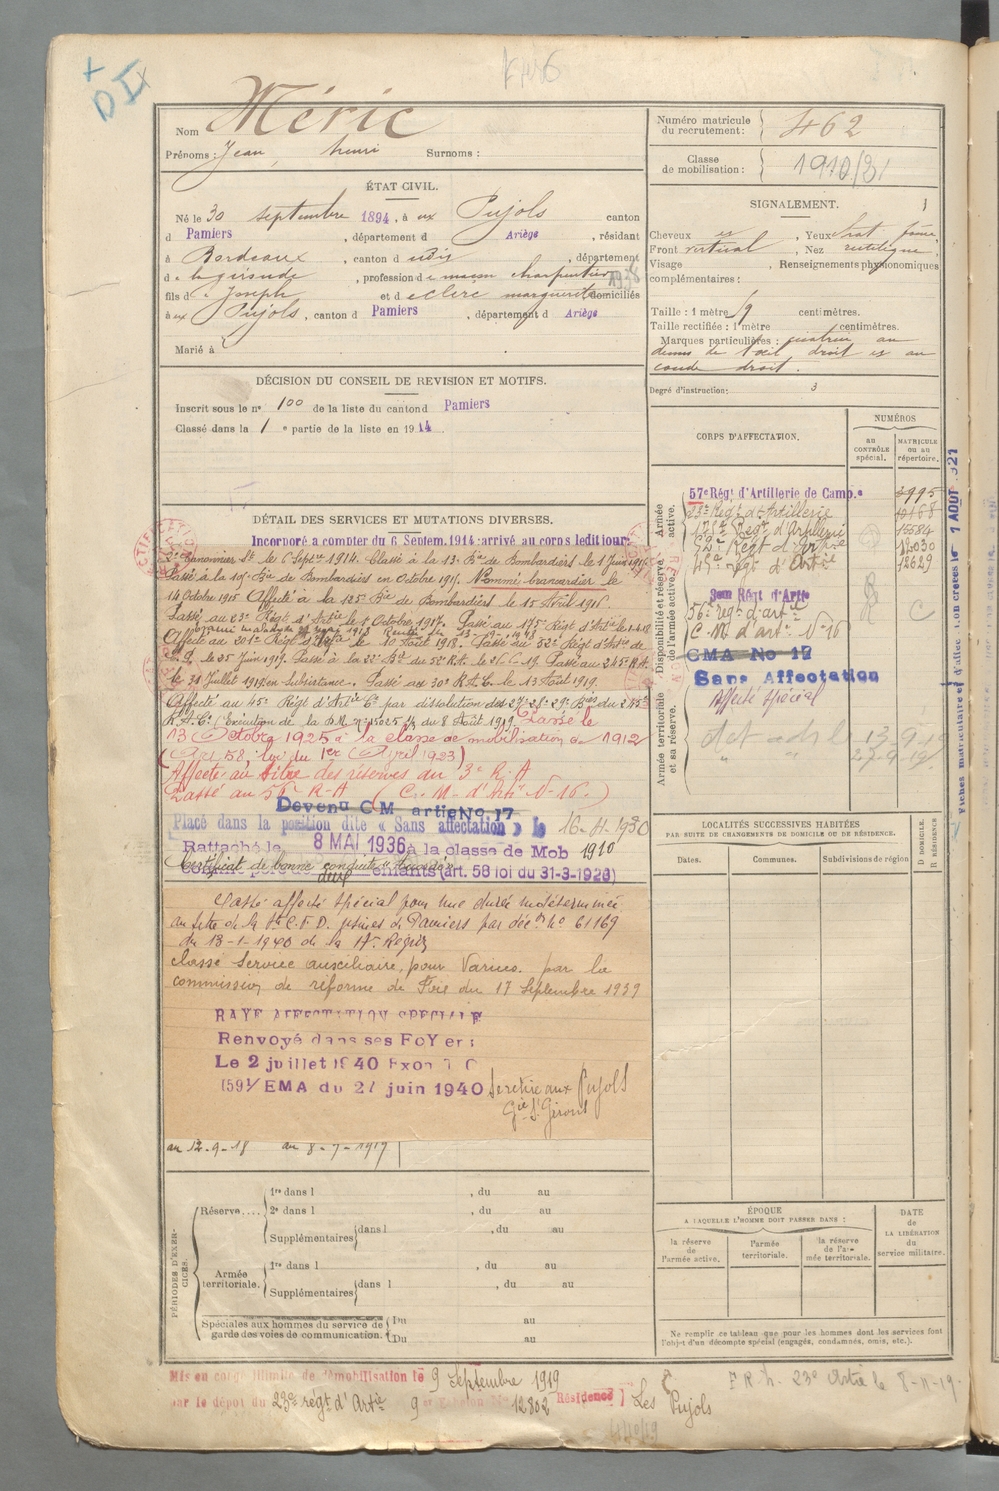 + D I
Nom Méric
Prénoms : Jean, Henri Surnoms :
Numéro matricule du recrutement : 462
Classe de mobilisation : 1910/31
ÉTAT CIVIL.
Né le 30 septembre 1894, à ux Pujols canton
d Pamiers, département d Ariège, résidant
à Bordeaux, canton d udis, département
de la gironde, profession de maçon charpentier
fils de Joseph et de clerc marguerite domiciliés
à ux Pujols, canton d Pamiers, département d Ariège
Marié à
SIGNALEMENT.
Cheveux , Yeux
Front vertical, Nez rectiligne,
Visage , Renseignements physionomiques
complémentaires :
Taille : 1 mètre centimètres.
Taille rectifiée : 1 mètre centimètres.
Marques particulières : cicatrice au
dessus de l'œil droit et au
coude droit.
Degré d'instruction : 3
DÉCISION DU CONSEIL DE REVISION ET MOTIFS.
Inscrit sous le n° 100 de la liste du canton d Pamiers
Classé dans la 1 e partie de la liste en 1914.
CORPS D'AFFECTATION.
NUMÉROS
au CONTRÔLE spécial.
MATRICULE ou au répertoire.
Armée active.
57e Régt d'Artillerie de Camp.e 3995
23e Régt d'Artillerie 10168
175e Régt d'Artillerie 15584
52e Régt d'Artie
45e Régt d'Artie 12629
Disponibilité et réserve de l'armée active.
3em Régt d'Artie
56e régt d'artie
C.M d'artie N°16
CMA No 17
Sans Affectation
Affecté spécial
Armée territoriale et sa réserve.
Fiches matriculaire et d'affectation créées le 1 AOUT 1921
DÉTAIL DES SERVICES ET MUTATIONS DIVERSES.
Incorporé à compter du 6 Septem. 1914 : arrivé au corps ledit jour.
2e Canonnier St. le 6 Septre 1914. Classé à la 13e Bie de Bombardiers le 1 Juin 1915
Passé à la 10e Bie de Bombardiers en Octobre 1915. Nommé brancardier le
14 Octobre 1915 Affecté à la 125e Bie de Bombardiers le 15 Avril 1916.
Passé au 23e Régt d'Artie le 1 Octobre 1917. Passé au 175e Régt d'Artie le 1-4-18
Affecté au 201e Régt d'Artie le 10 Août 1918. Passé au 52e Régt d'Artie de
C. le 25 Juin 1919. Passé à la 22e Bie du 52e R.A. le 26-6-19. Passé au 245e R.A.
le 31 Juillet 1919 en Subsistance. Passé au 30e R.A.C. le 13 Août 1919.
Affecté au 45e Régt d'Artie Ce par dissolution des 27e-28e-29e Bies du 245e
R.A.C. (Exécution de la D.M. n° 15025 3/4 du 8 Août 1919. Classé le
13 Octobre 1925 à la classe de mobilisation de 1912
(Art 58, loi du 1er Avril 1923)
Affecté au titre des réserves au 3e R.A
Passé au 56e R-A (C.M. d'Artie N°16.)
Devenu CM artie No 17
Placé dans la position dite « Sans affectation » le 16-4-1930
Rattaché le 8 MAI 1936 à la classe de Mob 1910
Certificat de bonne conduite "Accordé"
comme père de deux enfants (art. 58 loi du 31-3-1928)
Classé affecté spécial pour une durée indéterminée
au titre de la Sté C.F.D. usines de Pamiers par décon n° 61169
du 13-1-1940 de la 17e Région
classé service auxiliaire, pour Varices. par la
commission de réforme de Foix du 17 Septembre 1939
RAYE AFFECTATION SPECIALE
Renvoyé dans ses FoYers
Le 2 juillet 1940
/EMA du 27 juin 1940 Se retire aux Pujols
Gie St Girons
au 12-9-18 au 8-7-1917
LOCALITÉS SUCCESSIVES HABITÉES
PAR SUITE DE CHANGEMENTS DE DOMICILE OU DE RÉSIDENCE.
Dates. Communes. Subdivisions de région
D DOMICILE. R RÉSIDENCE
PÉRIODES D'EXERCICES.
Réserve.... 1re dans l , du au
2e dans l , du au
Supplémentaires dans l , du au
Armée territoriale. 1re dans l , du au
Supplémentaires dans l , du au
Spéciales aux hommes du service de garde des voies de communication. Du au
Du au
ÉPOQUE
A LAQUELLE L'HOMME DOIT PASSER DANS :
la réserve de l'armée active. l'armée territoriale. la réserve de l'armée territoriale.
DATE de LA LIBÉRATION du service militaire.
Ne remplir ce tableau que pour les hommes dont les services font l'objet d'un décompte spécial (engagés, condamnés, omis, etc.).
Mis en congé illimité de démobilisation le 9 Septembre 1919
par le dépôt du 23e régt d'Artie 9 Échelon N° 12802 Résidence Les Pujols
23e Artie le 8-11-19.